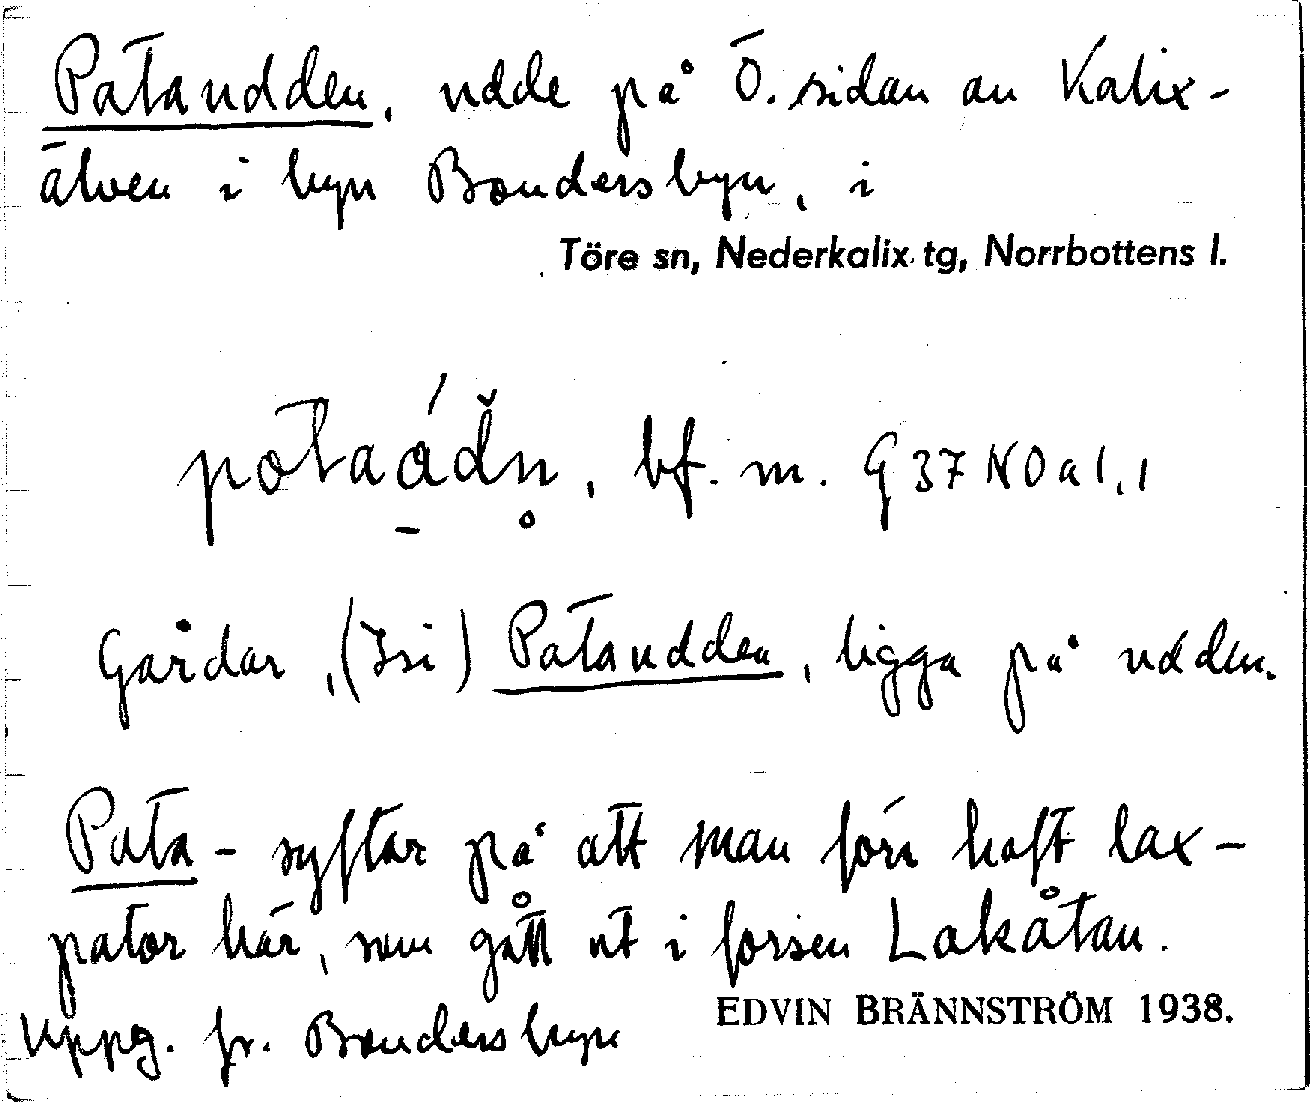 Patandden, udde på Ö. sidan av Kalix-
älven i byn Bondersbyn, i
Töre sn, Nederkalix tg, Norrbottens l.
bf. m. G 37 NO a 1,1
Gårdar, (Isi) Pataudden, ligga på udden.
Pata- syftar på att man förr haft lax-
pator här, som gått ut i forsen Lakåtan.
Uppg. fr. Bondersbyn
EDVIN BRÄNNSTRÖM 1938.